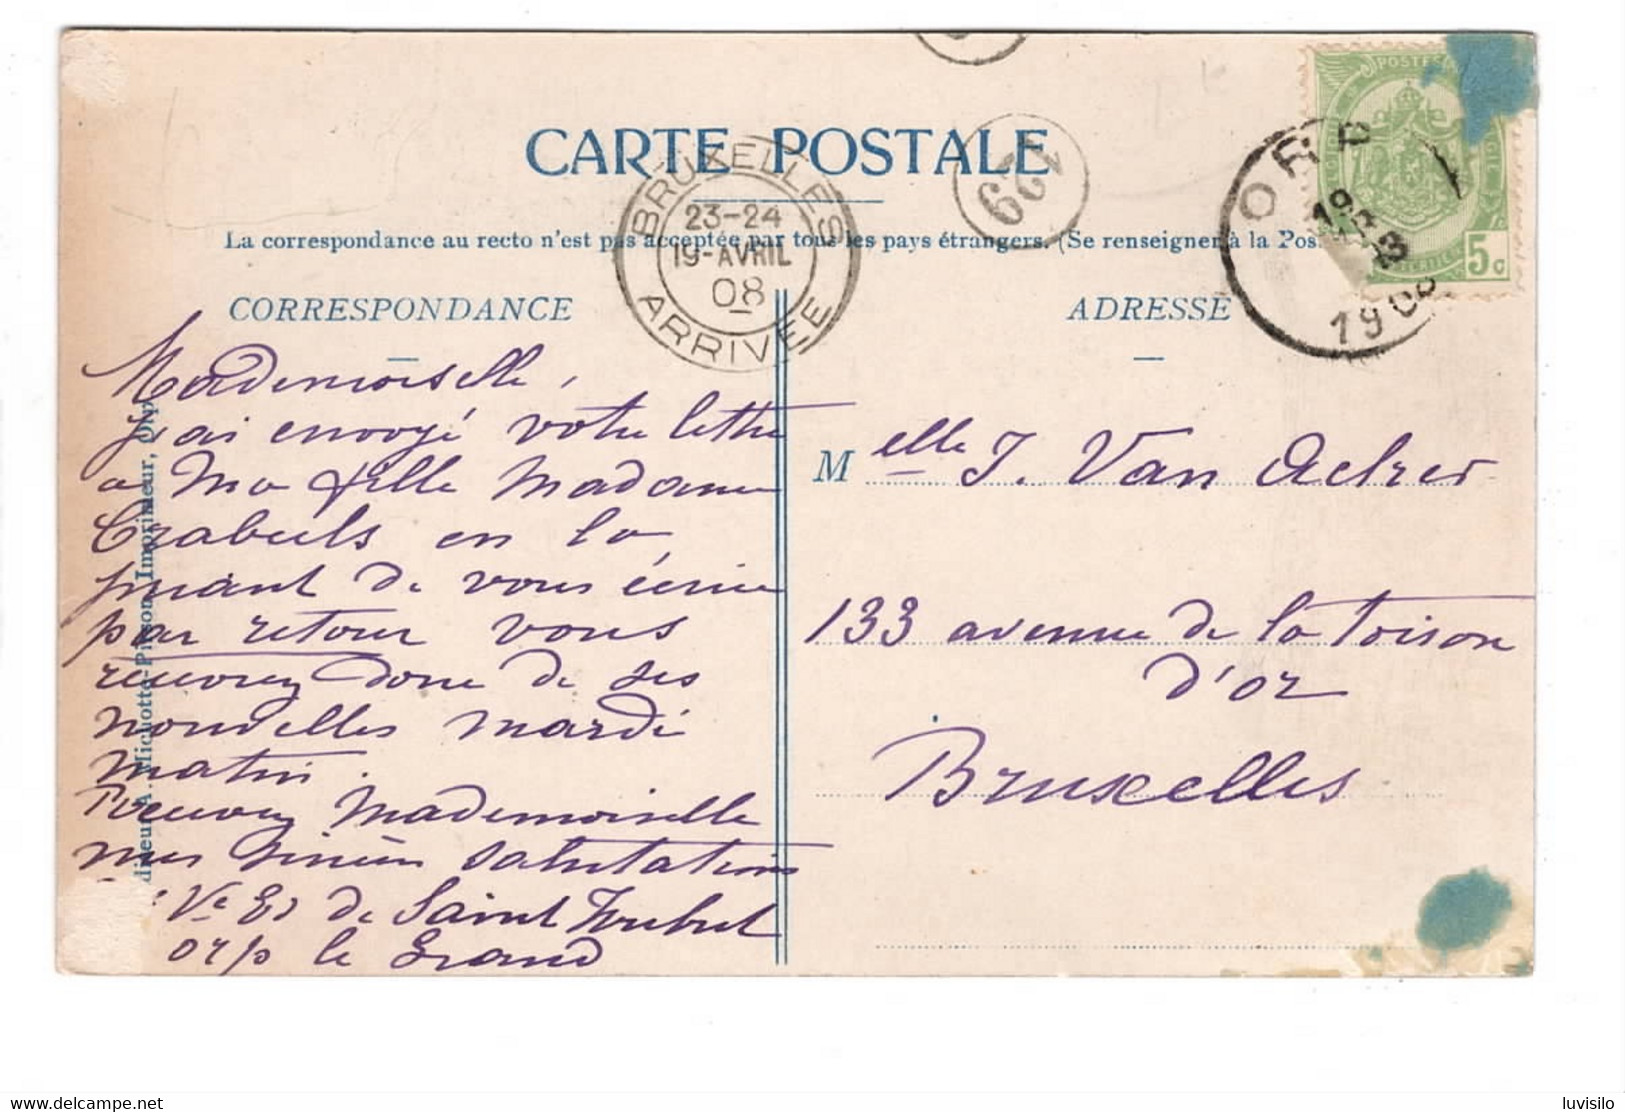 CARTE POSTALE
BRUXELLES
23-24
19-AVRIL
08
ARRIVÉE
129
ORP
19
1908
POSTES
5c
La correspondance au recto n'est pas acceptée par tous les pays étrangers. (Se renseigner à la Pos
CORRESPONDANCE
ADRESSE
Mademoiselle,
j'ai envoyé votre lettre
a Ma fille Madame
Crabeels en la
priant de vous écrire
par retour vous
recevrez donc de ses
nouvelles mardi
matin.
Recevez Mademoiselle
mes sincères salutations
Ve Es de Saint Hubert
orp le Grand
diteur A. Michotte-Pirson, Imprimeur, Orp
Melle J. Van Acker
133 avenue de la toison
d'or
Bruxelles
luvisilo